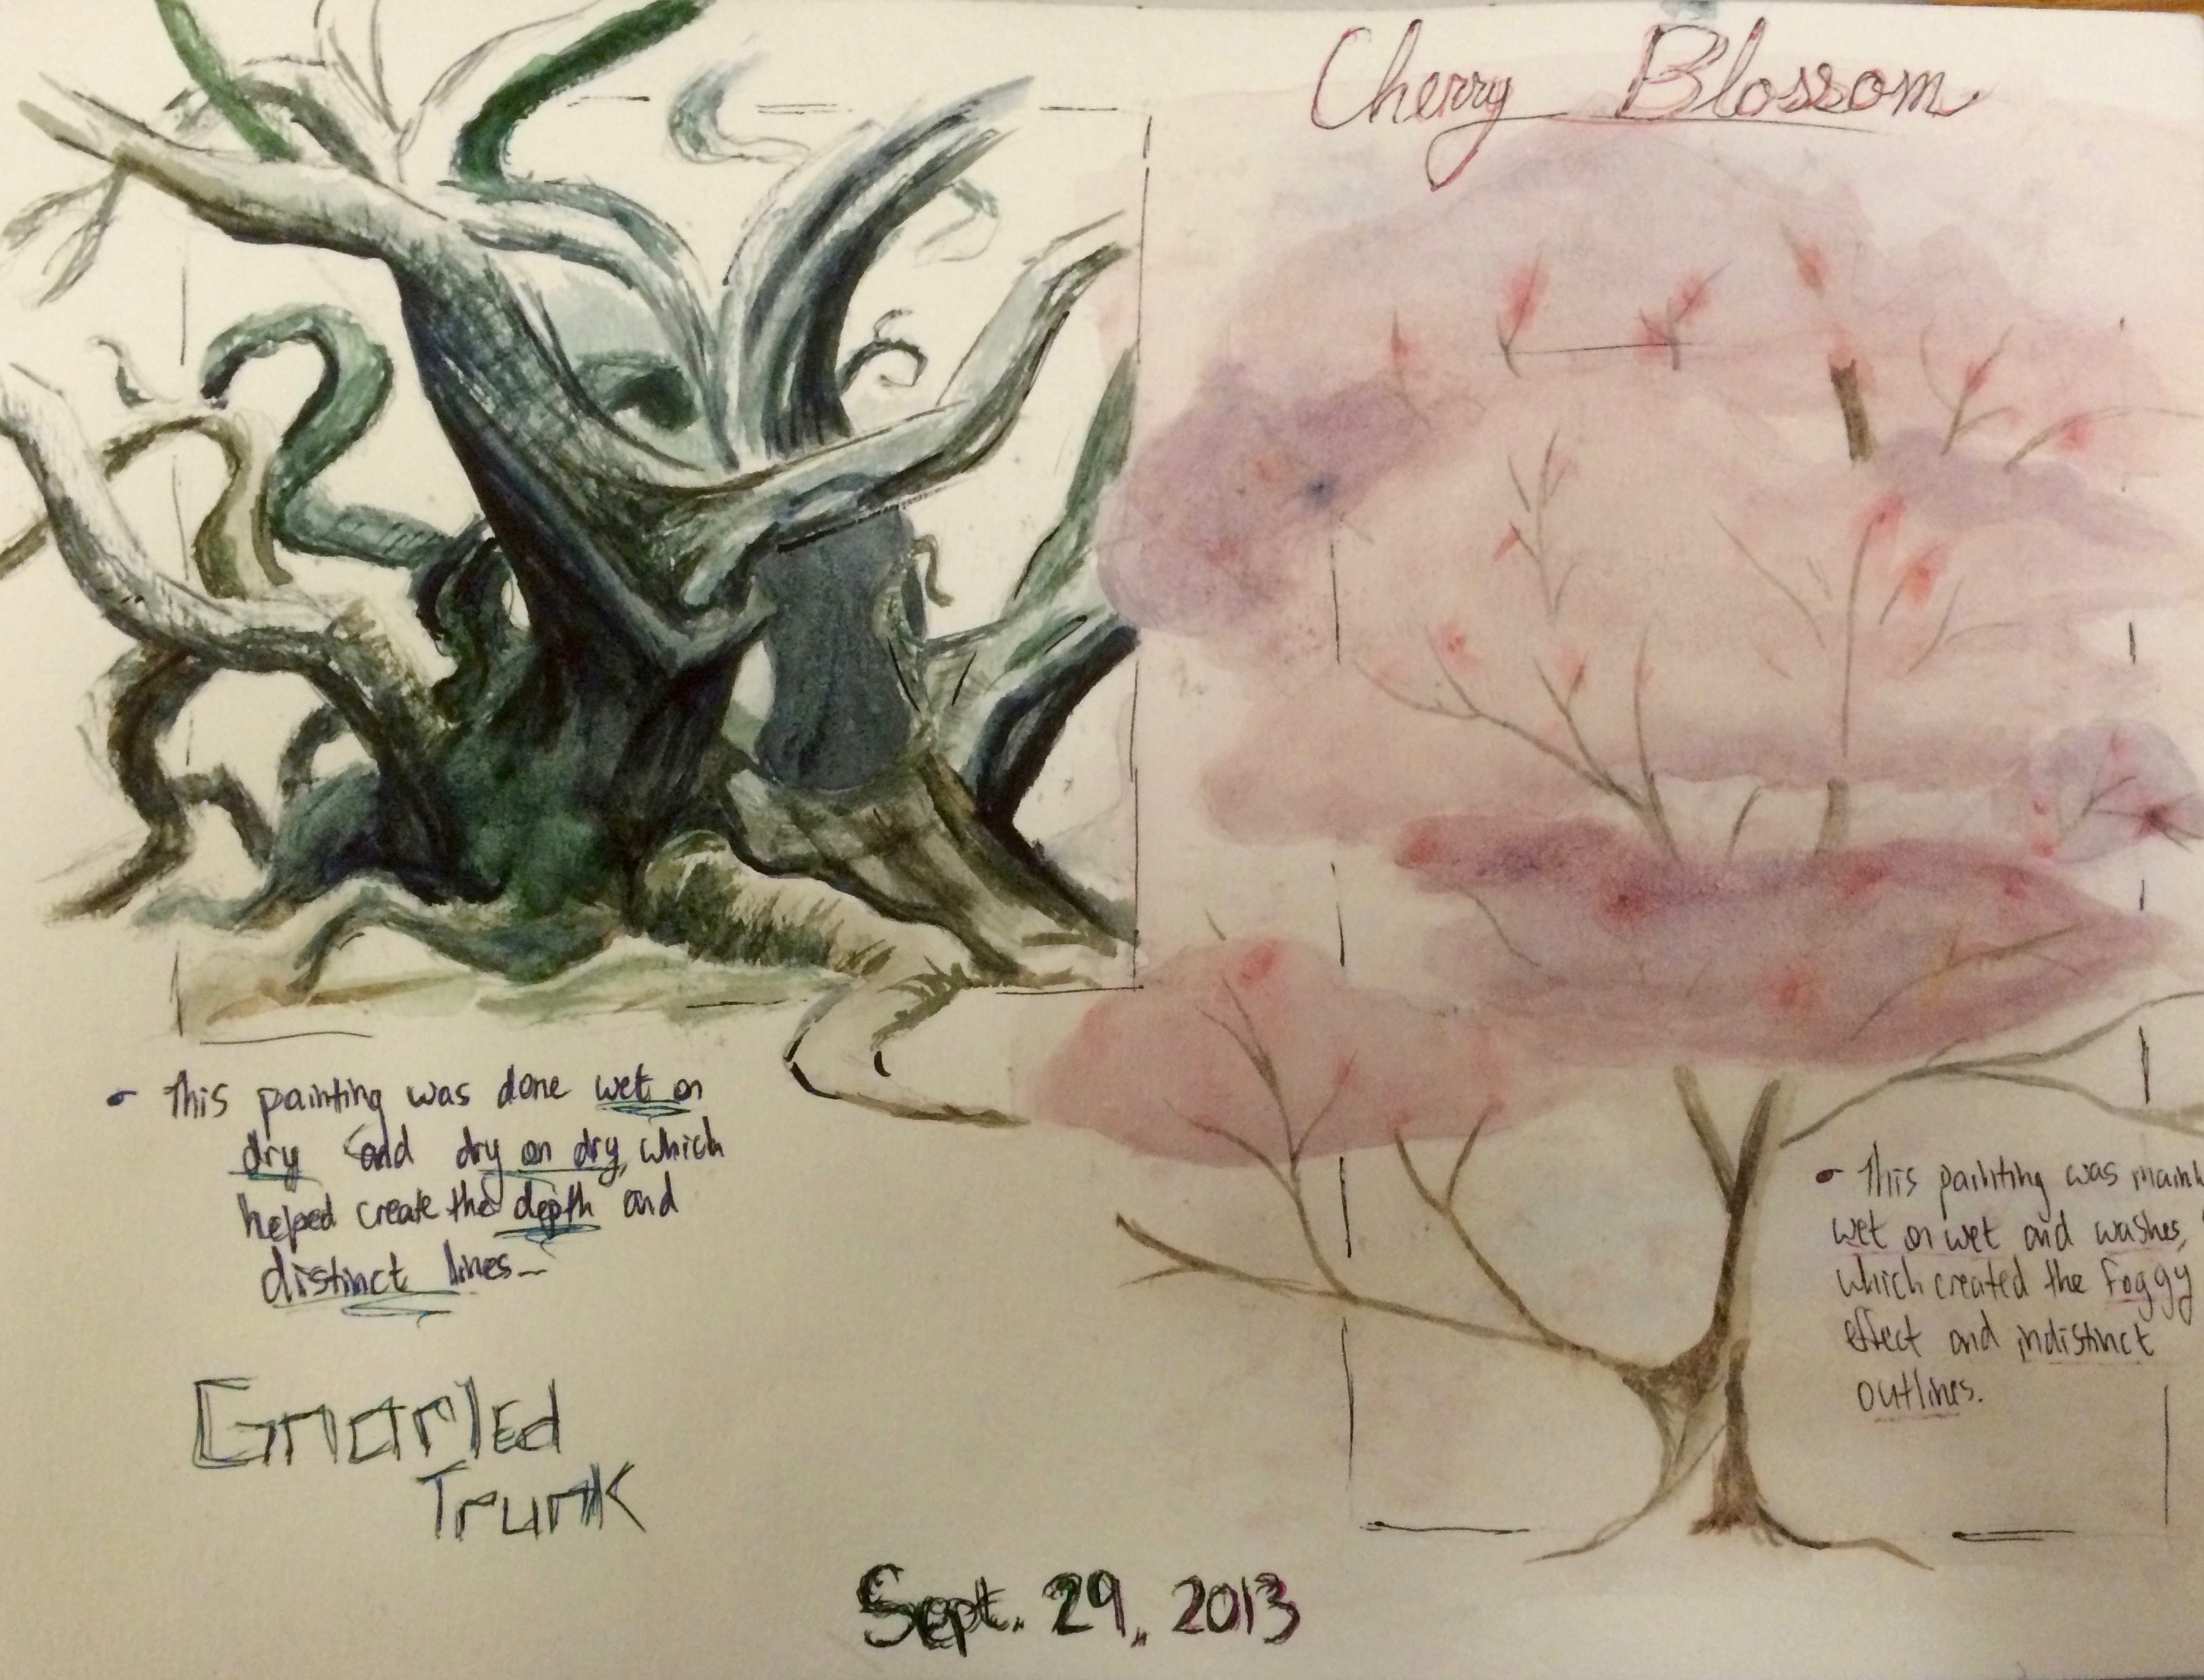 Cherry Blossom
- This painting was done wet on
dry and dry on dry, which
helped create the depth and
distinct lines.
Gnarled
Trunk
- This painting was
wet on wet and washes,
which created the foggy
effect and indistinct
outlines.
Sept. 29, 2013